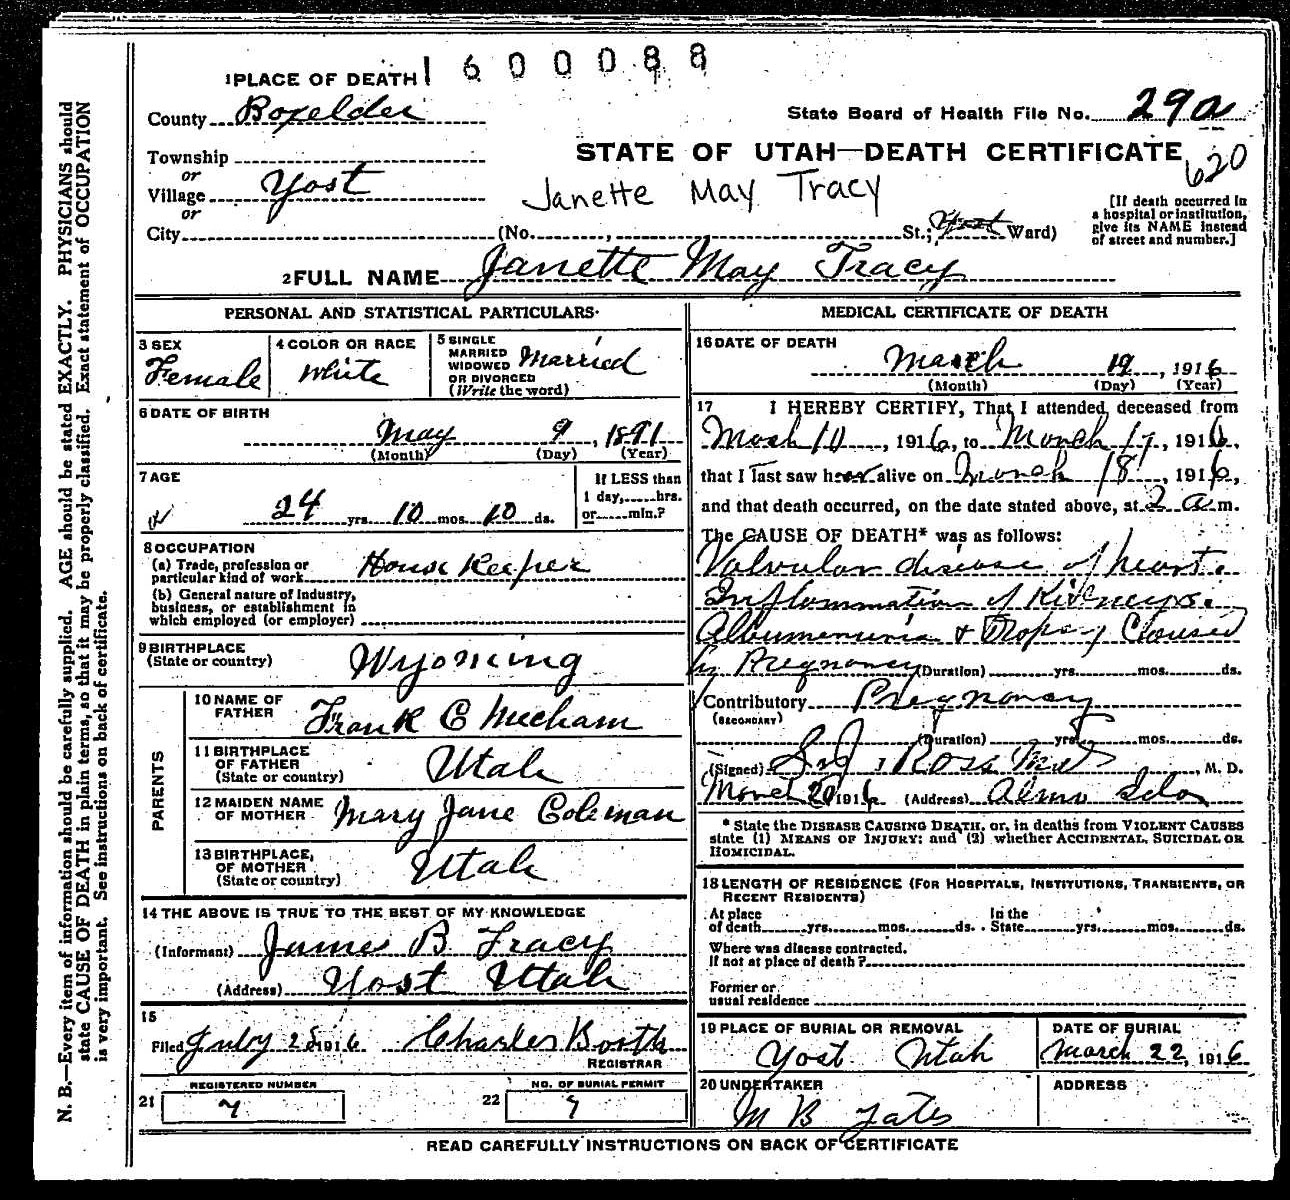 1 PLACE OF DEATH 1600088
County Boxelder
State Board of Health File No. 29a
Township
STATE OF UTAH—DEATH CERTIFICATE
620
or
Village Yost
Janette May Tracy
or
City (No. , St.; Yost Ward)
[If death occurred in
a hospital or institution,
give its NAME instead
of street and number.]
2 FULL NAME Janette May Tracy
PERSONAL AND STATISTICAL PARTICULARS
3 SEX
Female
4 COLOR OR RACE
White
5 SINGLE
MARRIED
WIDOWED
OR DIVORCED
(Write the word)
Married
6 DATE OF BIRTH
May 9, 1891
(Month) (Day) (Year)
7 AGE
24 yrs. 10 mos. 10 ds.
If LESS than
1 day, hrs.
or min.?
8 OCCUPATION
(a) Trade, profession or
particular kind of work House Keeper
(b) General nature of industry,
business, or establishment in
which employed (or employer)
9 BIRTHPLACE
(State or country) Wyoming
PARENTS
10 NAME OF
FATHER Frank C Mecham
11 BIRTHPLACE
OF FATHER
(State or country) Utah
12 MAIDEN NAME
OF MOTHER Mary Jane Coleman
13 BIRTHPLACE,
OF MOTHER
(State or country) Utah
14 THE ABOVE IS TRUE TO THE BEST OF MY KNOWLEDGE
(Informant) James B. Tracy
(Address) Yost Utah
15
Filed July 28 1916 Charles Booth
REGISTRAR
REGISTERED NUMBER
21 7
NO. OF BURIAL PERMIT
22 7
MEDICAL CERTIFICATE OF DEATH
16 DATE OF DEATH
March 19, 1916
(Month) (Day) (Year)
17 I HEREBY CERTIFY, That I attended deceased from
March 10, 1916, to March 17, 1916,
that I last saw her alive on March 18, 1916,
and that death occurred, on the date stated above, at 2 a. m.
The CAUSE OF DEATH* was as follows:
Valvular disease of heart.
Inflammation of Kidneys.
Albumenuria & Dropsy Caused
by Pregnancy (Duration) yrs. mos. ds.
Contributory Pregnancy
(SECONDARY)
(Duration) yrs. mos. ds.
(Signed) Ross, M. D.
March 20 1916 (Address) Almo Ida
* State the DISEASE CAUSING DEATH, or, in deaths from VIOLENT CAUSES
state (1) MEANS OF INJURY; and (2) whether ACCIDENTAL, SUICIDAL OR
HOMICIDAL.
18 LENGTH OF RESIDENCE (FOR HOSPITALS, INSTITUTIONS, TRANSIENTS, OR
RECENT RESIDENTS)
At place
of death yrs. mos. ds.
In the
State yrs. mos. ds.
Where was disease contracted.
If not at place of death?
Former or
usual residence
19 PLACE OF BURIAL OR REMOVAL
Yost Utah
DATE OF BURIAL
March 22, 1916
20 UNDERTAKER
M B Yates
ADDRESS
READ CAREFULLY INSTRUCTIONS ON BACK OF CERTIFICATE
N. B.—Every item of information should be carefully supplied. AGE should be stated EXACTLY. PHYSICIANS should
state CAUSE OF DEATH in plain terms, so that it may be properly classified. Exact statement of OCCUPATION
is very important. See instructions on back of certificate.